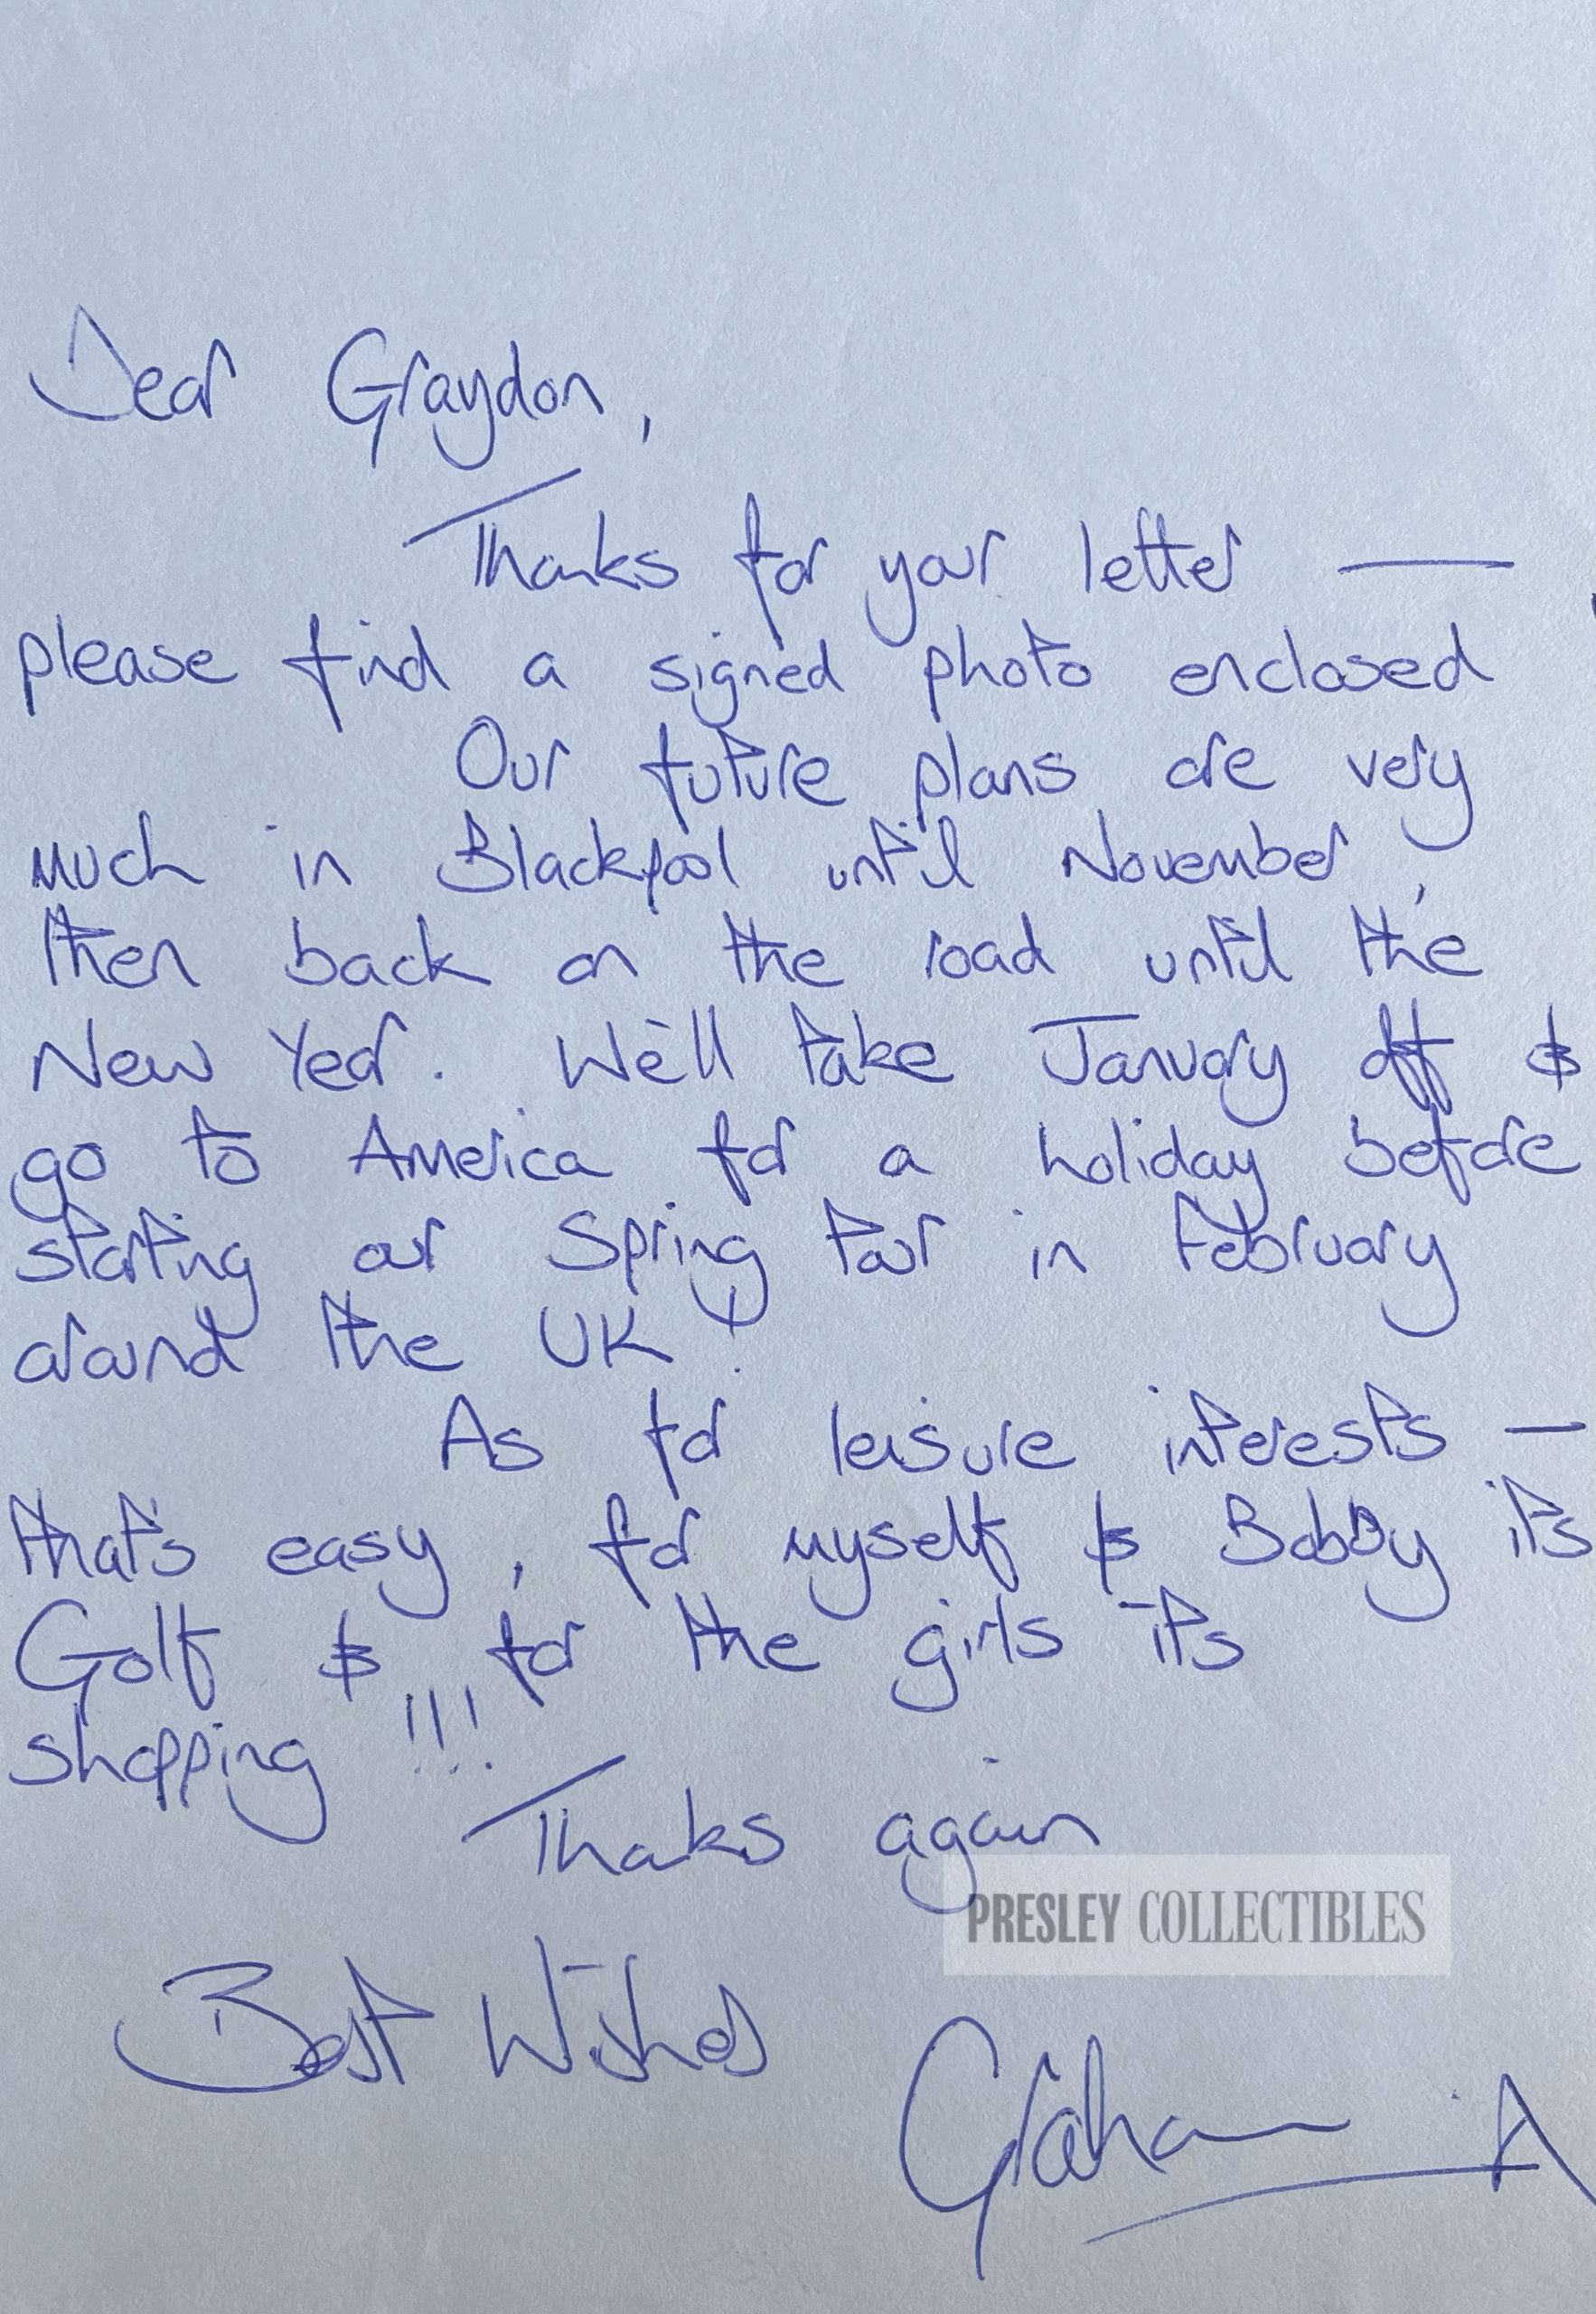 Dear Graydon,
Thanks for your letter —
please find a signed photo enclosed
Our future plans are very
much in Blackpool until November,
then back on the road until the
New Year. We'll take January off &
go to America for a holiday before
starting our Spring tour in February
around the UK!
As for leisure interests —
that's easy, for myself & Bobby its
Golf & for the girls its
shopping!!!
Thanks again
PRESLEY COLLECTIBLES
Best Wishes
Graham A